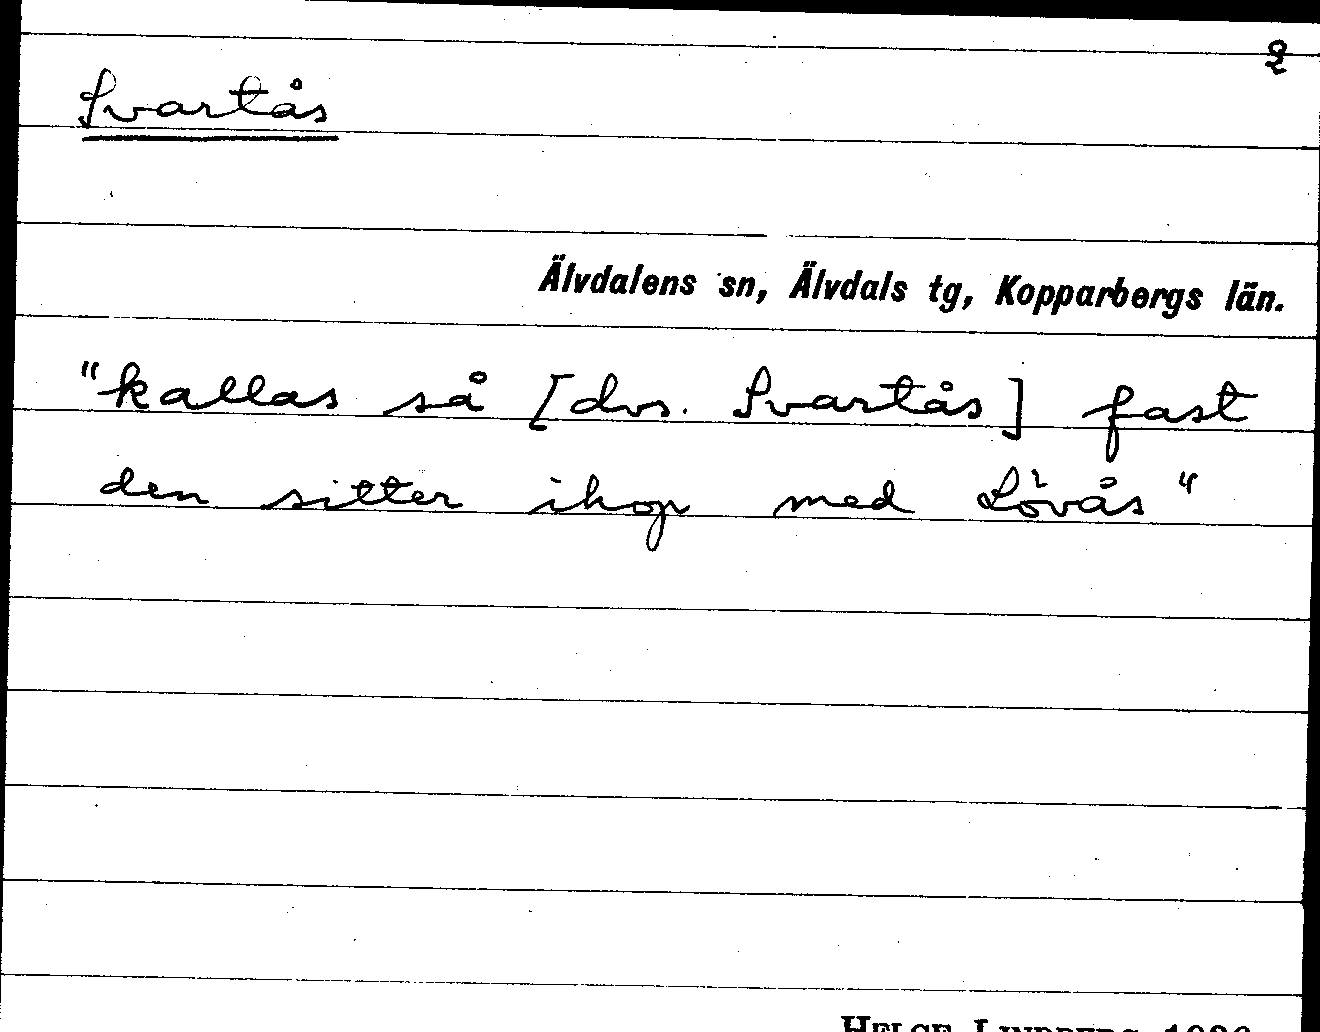 2
Svartås
Älvdalens sn, Älvdals tg, Kopparbergs län.
"kallas så [dvs. Svartås] fast
den sitter ihop med Lövås"
HELGE LINDBERG